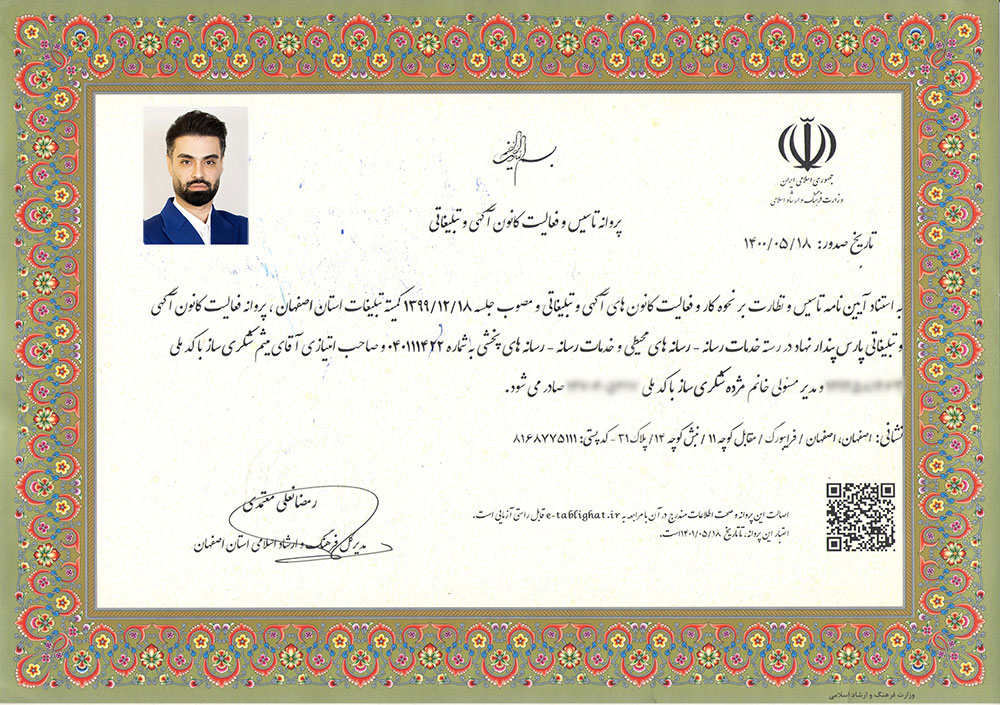 بسم الله الرحمن الرحیم
جمهوری اسلامی ایران
وزارت فرهنگ و ارشاد اسلامی
پروانه تاسیس و فعالیت کانون آگهی و تبلیغاتی
تاریخ صدور: ۱۴۰۰/۰۵/۱۸
به استناد آیین نامه تاسیس و نظارت بر نحوه کار و فعالیت کانون های آگهی و تبلیغاتی و مصوب جلسه ۱۳۹۹/۱۲/۱۸ کمیته تبلیغات استان اصفهان ، پروانه فعالیت کانون آگهی
و تبلیغاتی پارس پندار نهاد در رسته خدمات رسانه - رسانه های محیطی و خدمات رسانه - رسانه های پخشی به شماره ۰۴۰۱۱۱۴۲۲ و صاحب امتیازی آقای میثم شکری ساز با کد ملی
و مدیر مسئولی خانم مژده شکری ساز با کد ملی صادر می شود.
نشانی: اصفهان، اصفهان / فرایبورگ / مقابل کوچه ۱۱ / نبش کوچه ۱۴ / پلاک ۳۱ - کد پستی: ۸۱۶۸۷۷۵۱۱۱
اصالت این پروانه و صحت اطلاعات مندرج در آن با مراجعه به e-tablighat.ir قابل راستی آزمایی است.
اعتبار این پروانه، تا تاریخ ۱۴۰۱/۰۵/۱۸ است.
رمضانعلی معتمدی
مدیر کل فرهنگ و ارشاد اسلامی استان اصفهان
وزارت فرهنگ و ارشاد اسلامی